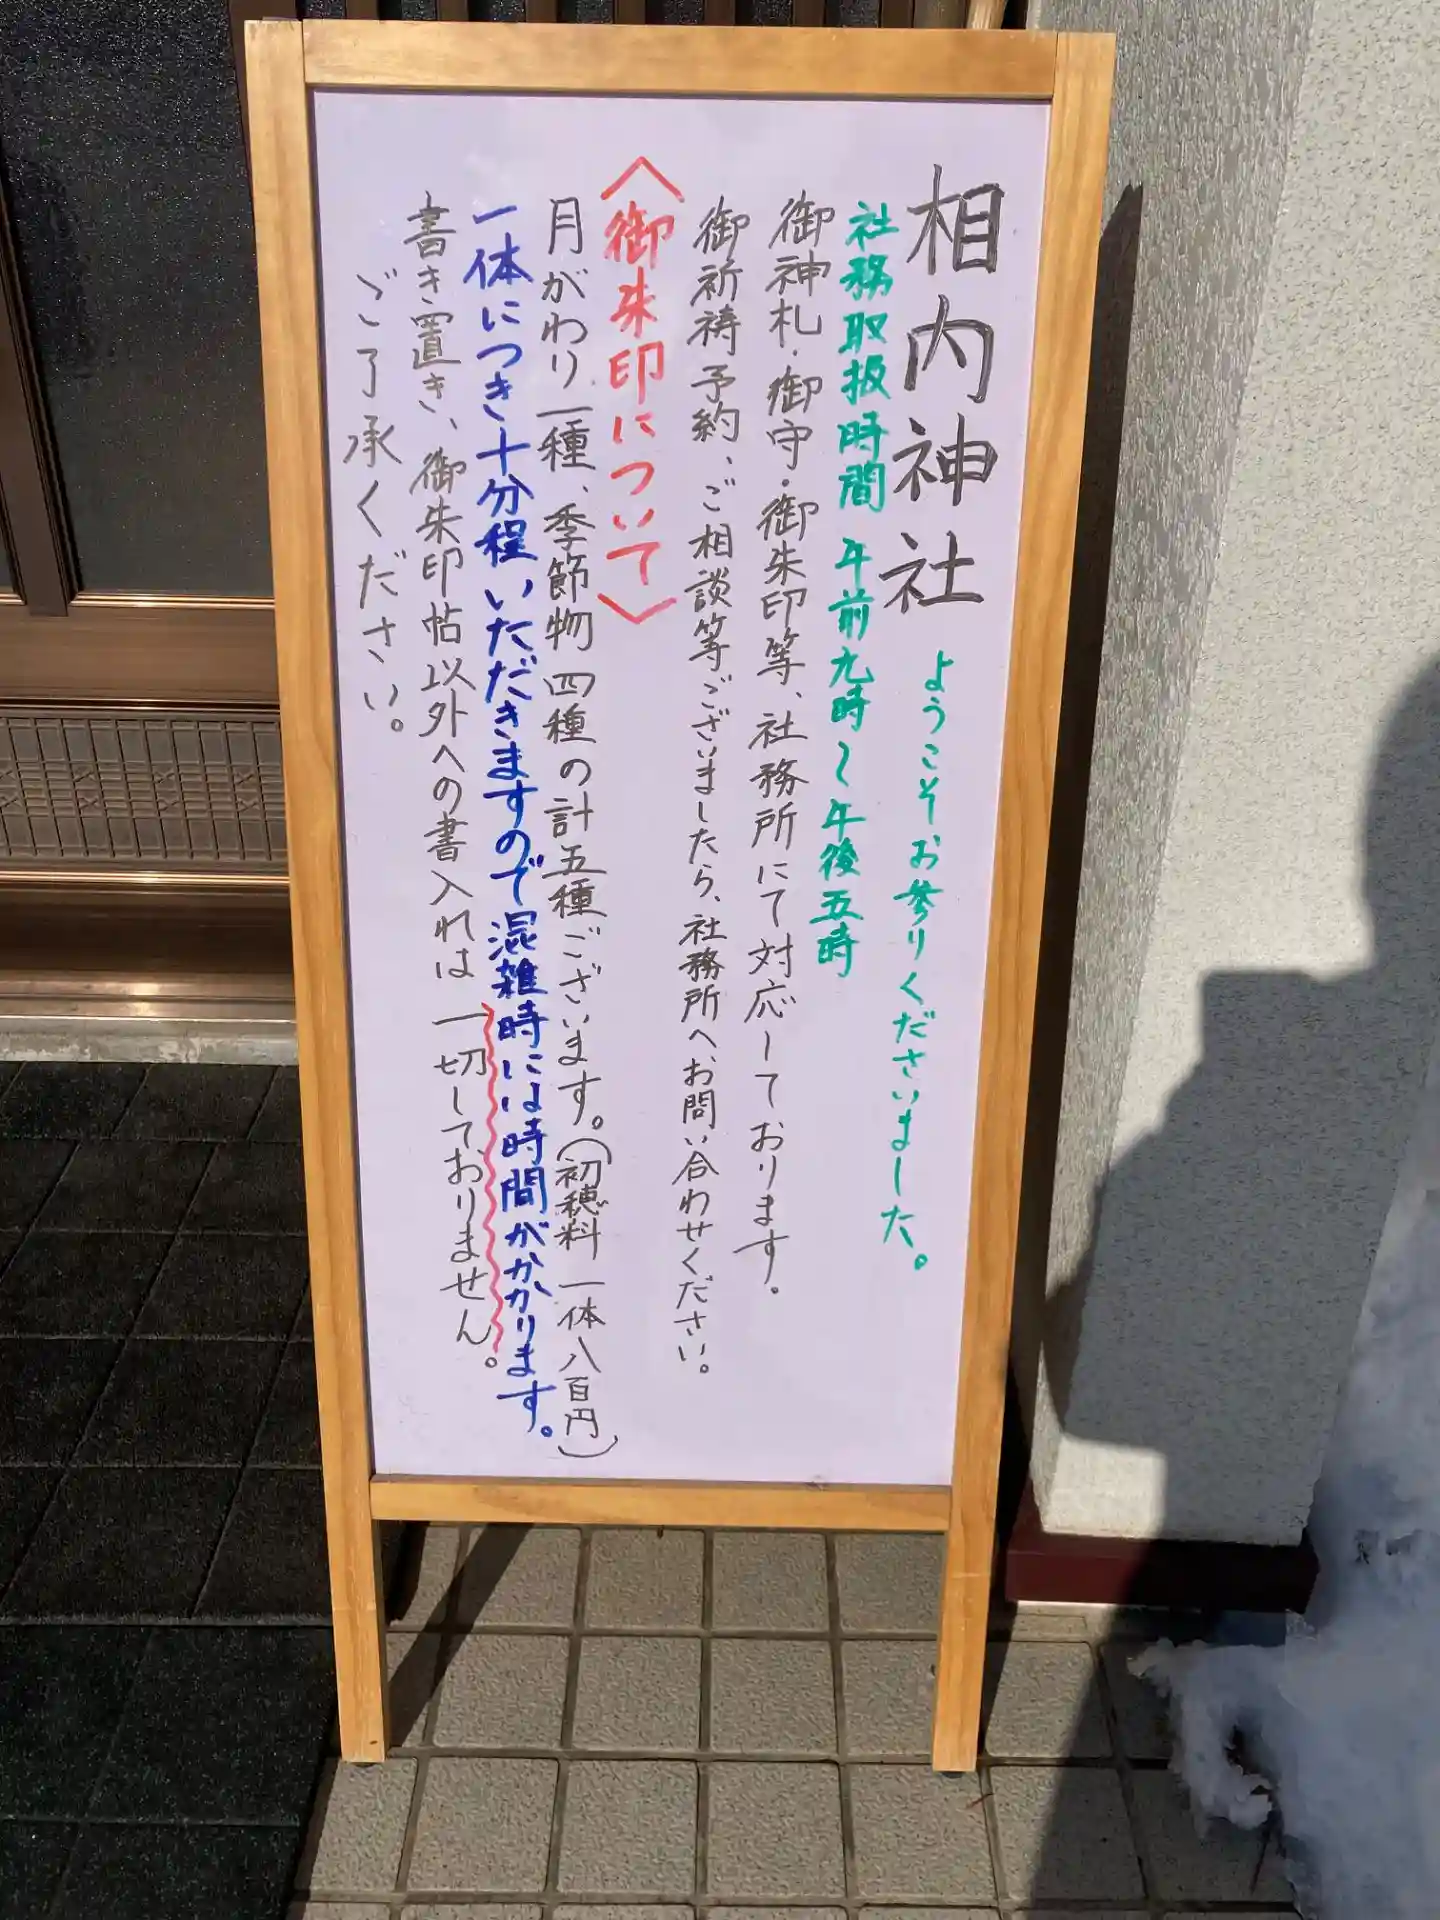 相内神社 ようこそお参りくださいました。
社務取扱時間 午前九時〜午後五時
御神札・御守・御朱印等、社務所にて対応しております。
御祈祷予約、ご相談等ございましたら、社務所へお問い合わせください。
〈御朱印について〉
月がわり一種、季節物四種の計五種ございます。(初穂料 一体八百円)
一体につき十分程いただきますので混雑時には時間がかかります。
書き置き、御朱印帖以外への書入れは一切しておりません。
ご了承ください。